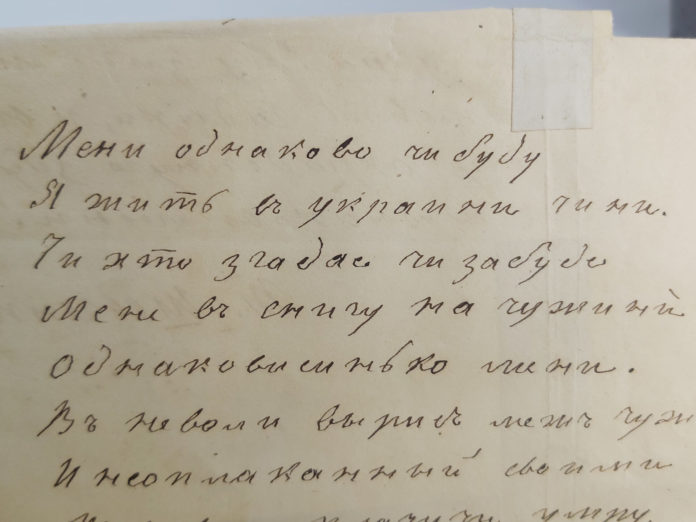 Мени однаково чи буду
Я жить въ украини чи ни.
Чи хто згадае чи забуде
Мене въ снигу на чужини
Однаковисинько мени.
Въ неволи вырисъ межъ чуж
И неоплаканный своими
умру